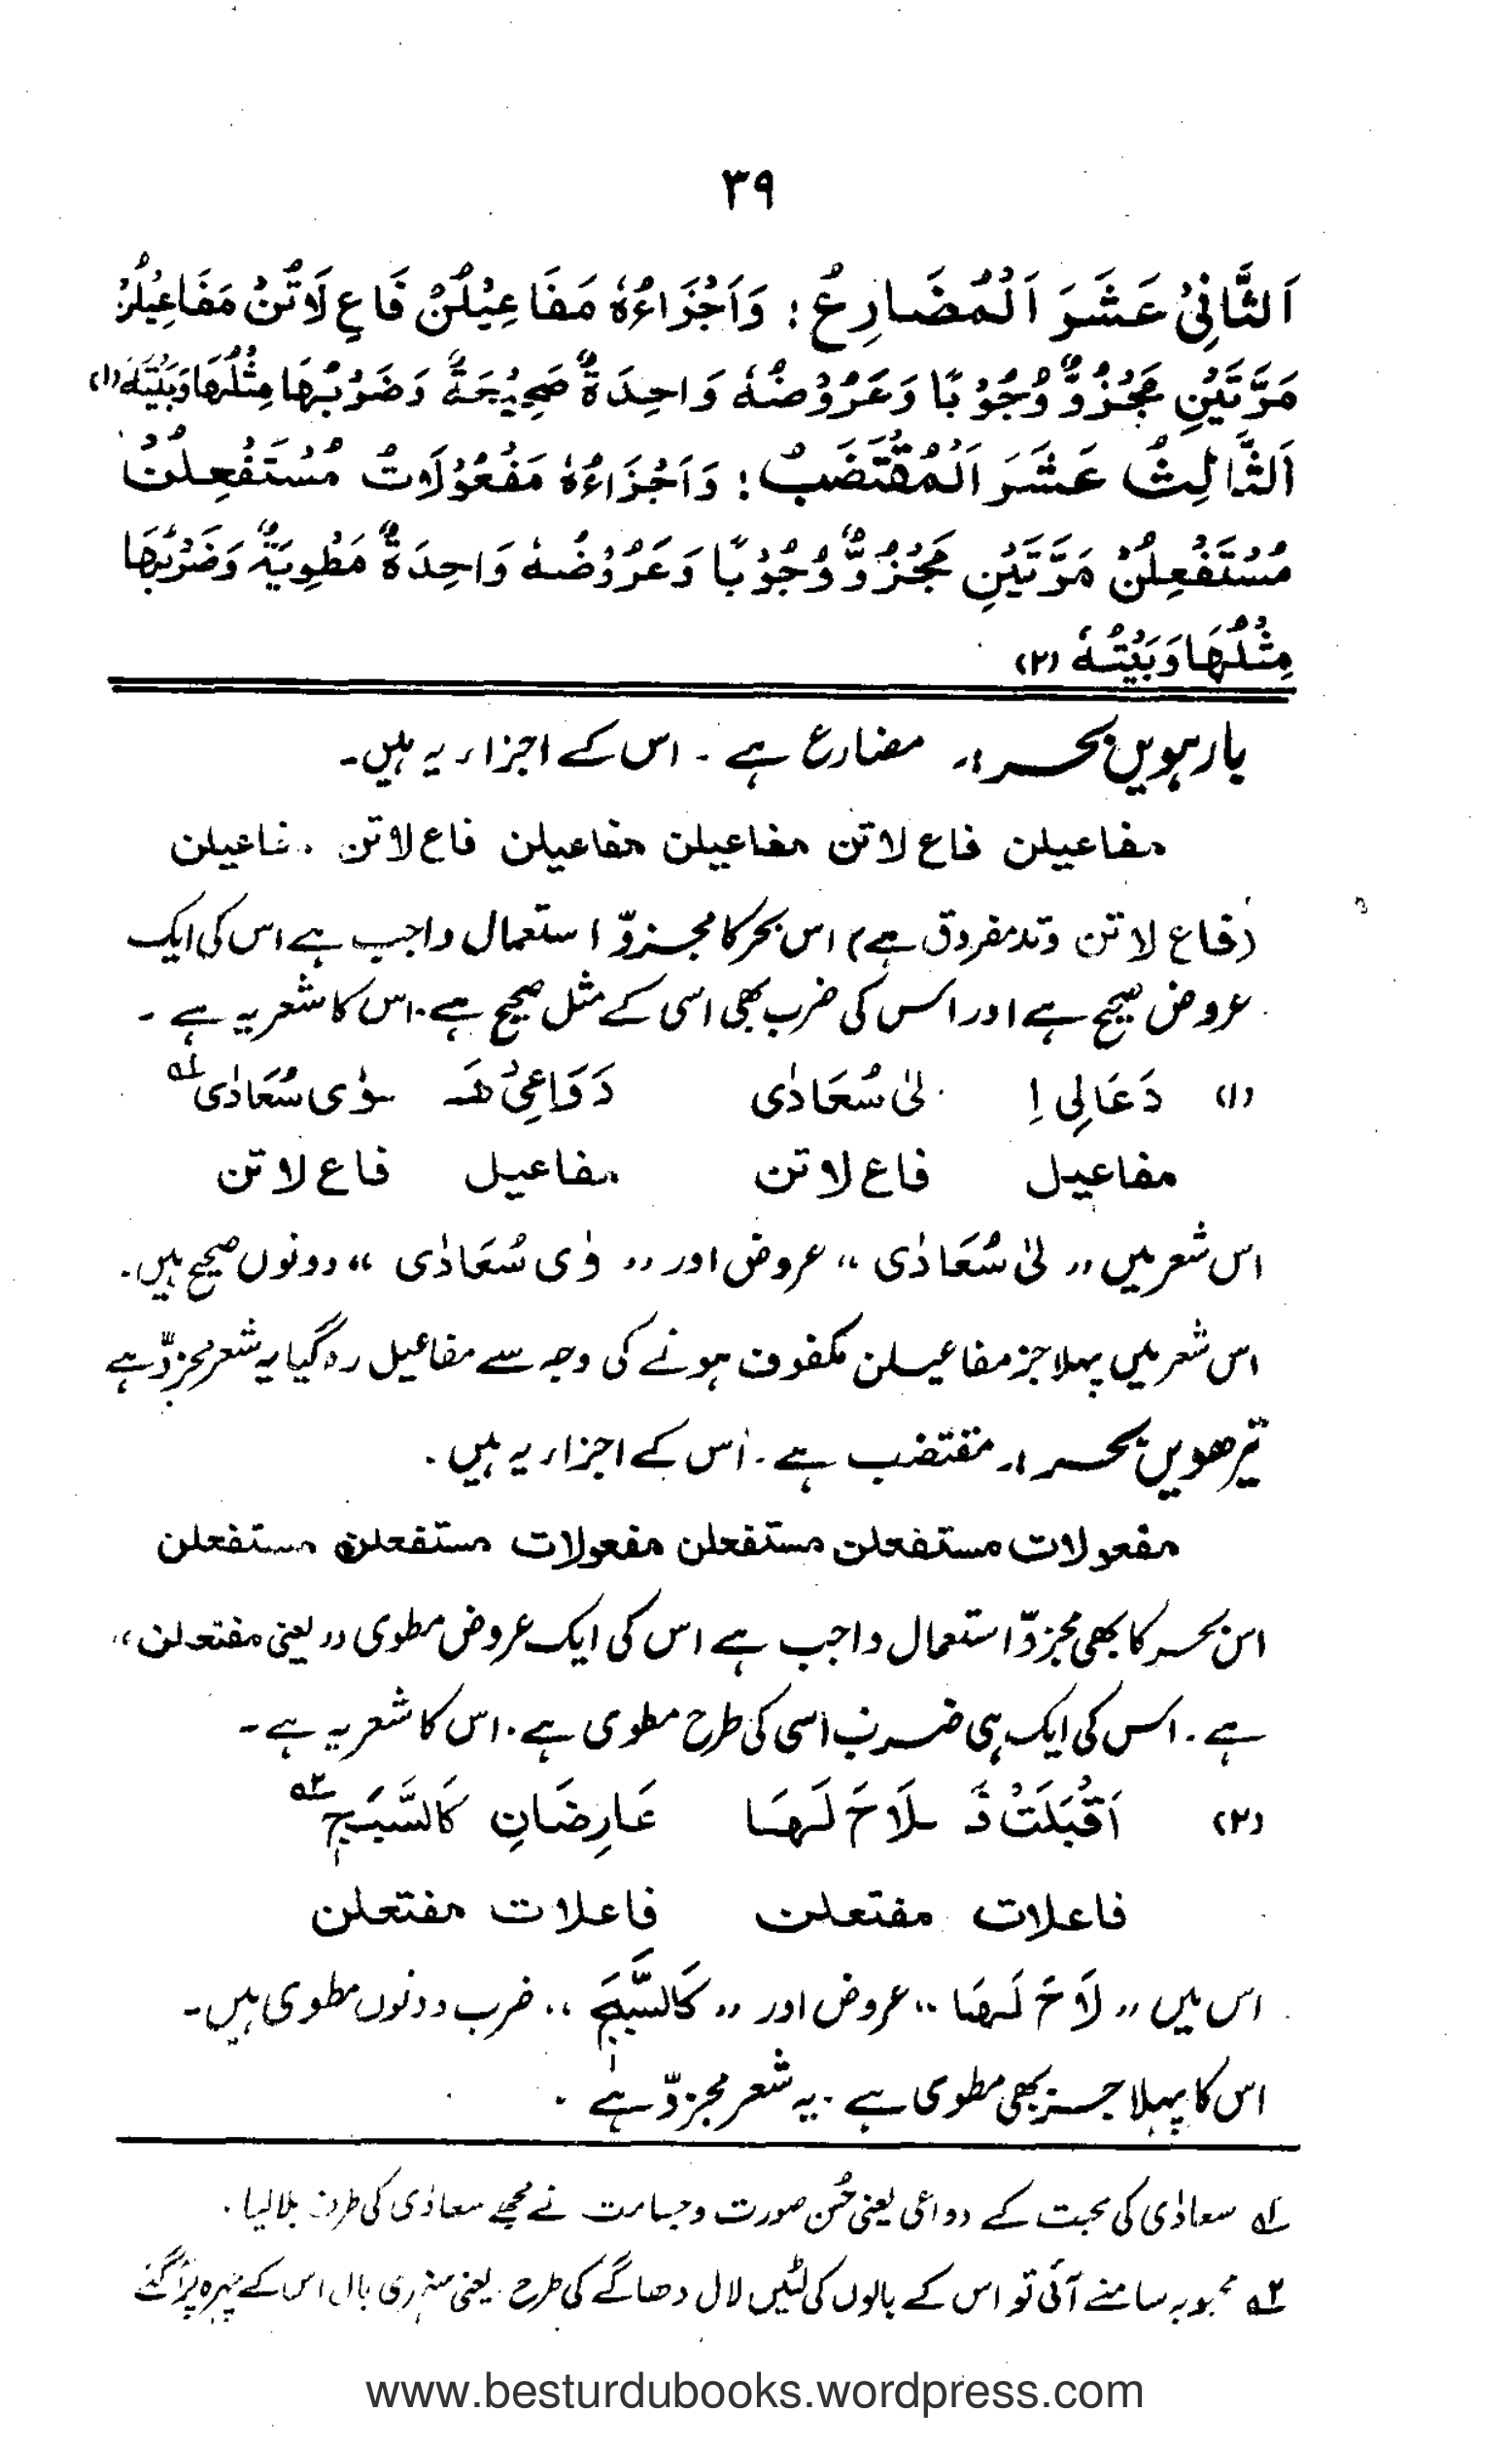 ۳۹
اَلثَّانِیْ عَشَرَ اَلْمُضَارِعُ: وَاَجْزَاءُهٗ مَفَاعِیْلُنْ فَاعِ لَاتُنْ مَفَاعِیْلُنْ
مَرَّتَیْنِ مَجْزُوٌّ وُجُوْبًا وَعَرُوْضُهٗ وَاحِدَةٌ صَحِیْحَةٌ وَضَرْبُهَا مِثْلُهَا وَبَیْتُهٗ (۱)
اَلثَّالِثُ عَشَرَ اَلْمُقْتَضَبُ: وَاَجْزَاءُهٗ مَفْعُوْلَاتُ مُسْتَفْعِلُنْ
مُسْتَفْعِلُنْ مَرَّتَیْنِ مَجْزُوٌّ وُجُوْبًا وَعَرُوْضُهٗ وَاحِدَةٌ مَطْوِیَةٌ وَضَرْبُهَا
مِثْلُهَا وَبَیْتُهٗ (۲)
بارہویں بحر :۔ مضارع ہے ۔ اس کے اجزاء یہ ہیں۔
مفاعیلن فاع لاتن مفاعیلن مفاعیلن فاع لاتن مفاعیلن
(فاع لاتن وتد مفروق ہے) اس بحر کا مجزوّ استعمال واجب ہے اس کی ایک
عروض صحیح ہے اور اس کی ضرب بھی اسی کے مثل صحیح ہے۔ اس کا شعر یہ ہے ۔
(۱) دَعَالِی اِ لیٰ سُعَادٰی دَوَاعِیْ هَـ ـوٰی سُعَادٰی ؂۱
مفاعیل فاع لاتن مفاعیل فاع لاتن
اس شعر میں ,, لیٰ سُعَادٰی ،، عروض اور ,, وٰی سُعَادٰی ،، دونوں صحیح ہیں۔
اس شعر میں پہلا جز مفاعیلن مکفوف ہونے کی وجہ سے مفاعیل رہ گیا یہ شعر مجزوّ ہے
تیرھویں بحر :۔ مقتضب ہے ۔ اس کے اجزاء یہ ہیں ۔
مفعولات مستفعلن مستفعلن مفعولات مستفعلن مستفعلن
اس بحر کا بھی مجزوّ استعمال واجب ہے اس کی ایک عروض مطوی ,, یعنی مفتعلن ،،
ہے ۔ اس کی ایک ہی ضرب اسی کی طرح مطوی ہے ۔ اس کا شعر یہ ہے ۔
(۲) اَقْبَلَتْ فَـ ـلَاحَ لَهَا عَارِضَانِ کَالسَّبَجِ ؂۲
فاعلات مفتعلن فاعلات مفتعلن
اس میں ,, لَاحَ لَهَا ،، عروض اور ,, کَالسَّبَجِ ،، ضرب دونوں مطوی ہیں ۔
اس کا پہلا جز بھی مطوی ہے ۔ یہ شعر مجزوّ ہے ۔
؂۱ سعادٰی کی محبت کے دواعی یعنی حُسن صورت وجسامت نے مجھے سعادٰی کی طرف بلالیا ۔
؂۲ محبوبہ سامنے آئی تو اس کے بالوں کی لٹیں لال دھاگے کی طرح یعنی سنہری بال اس کے چہرہ پر آ گئے
www.besturdubooks.wordpress.com